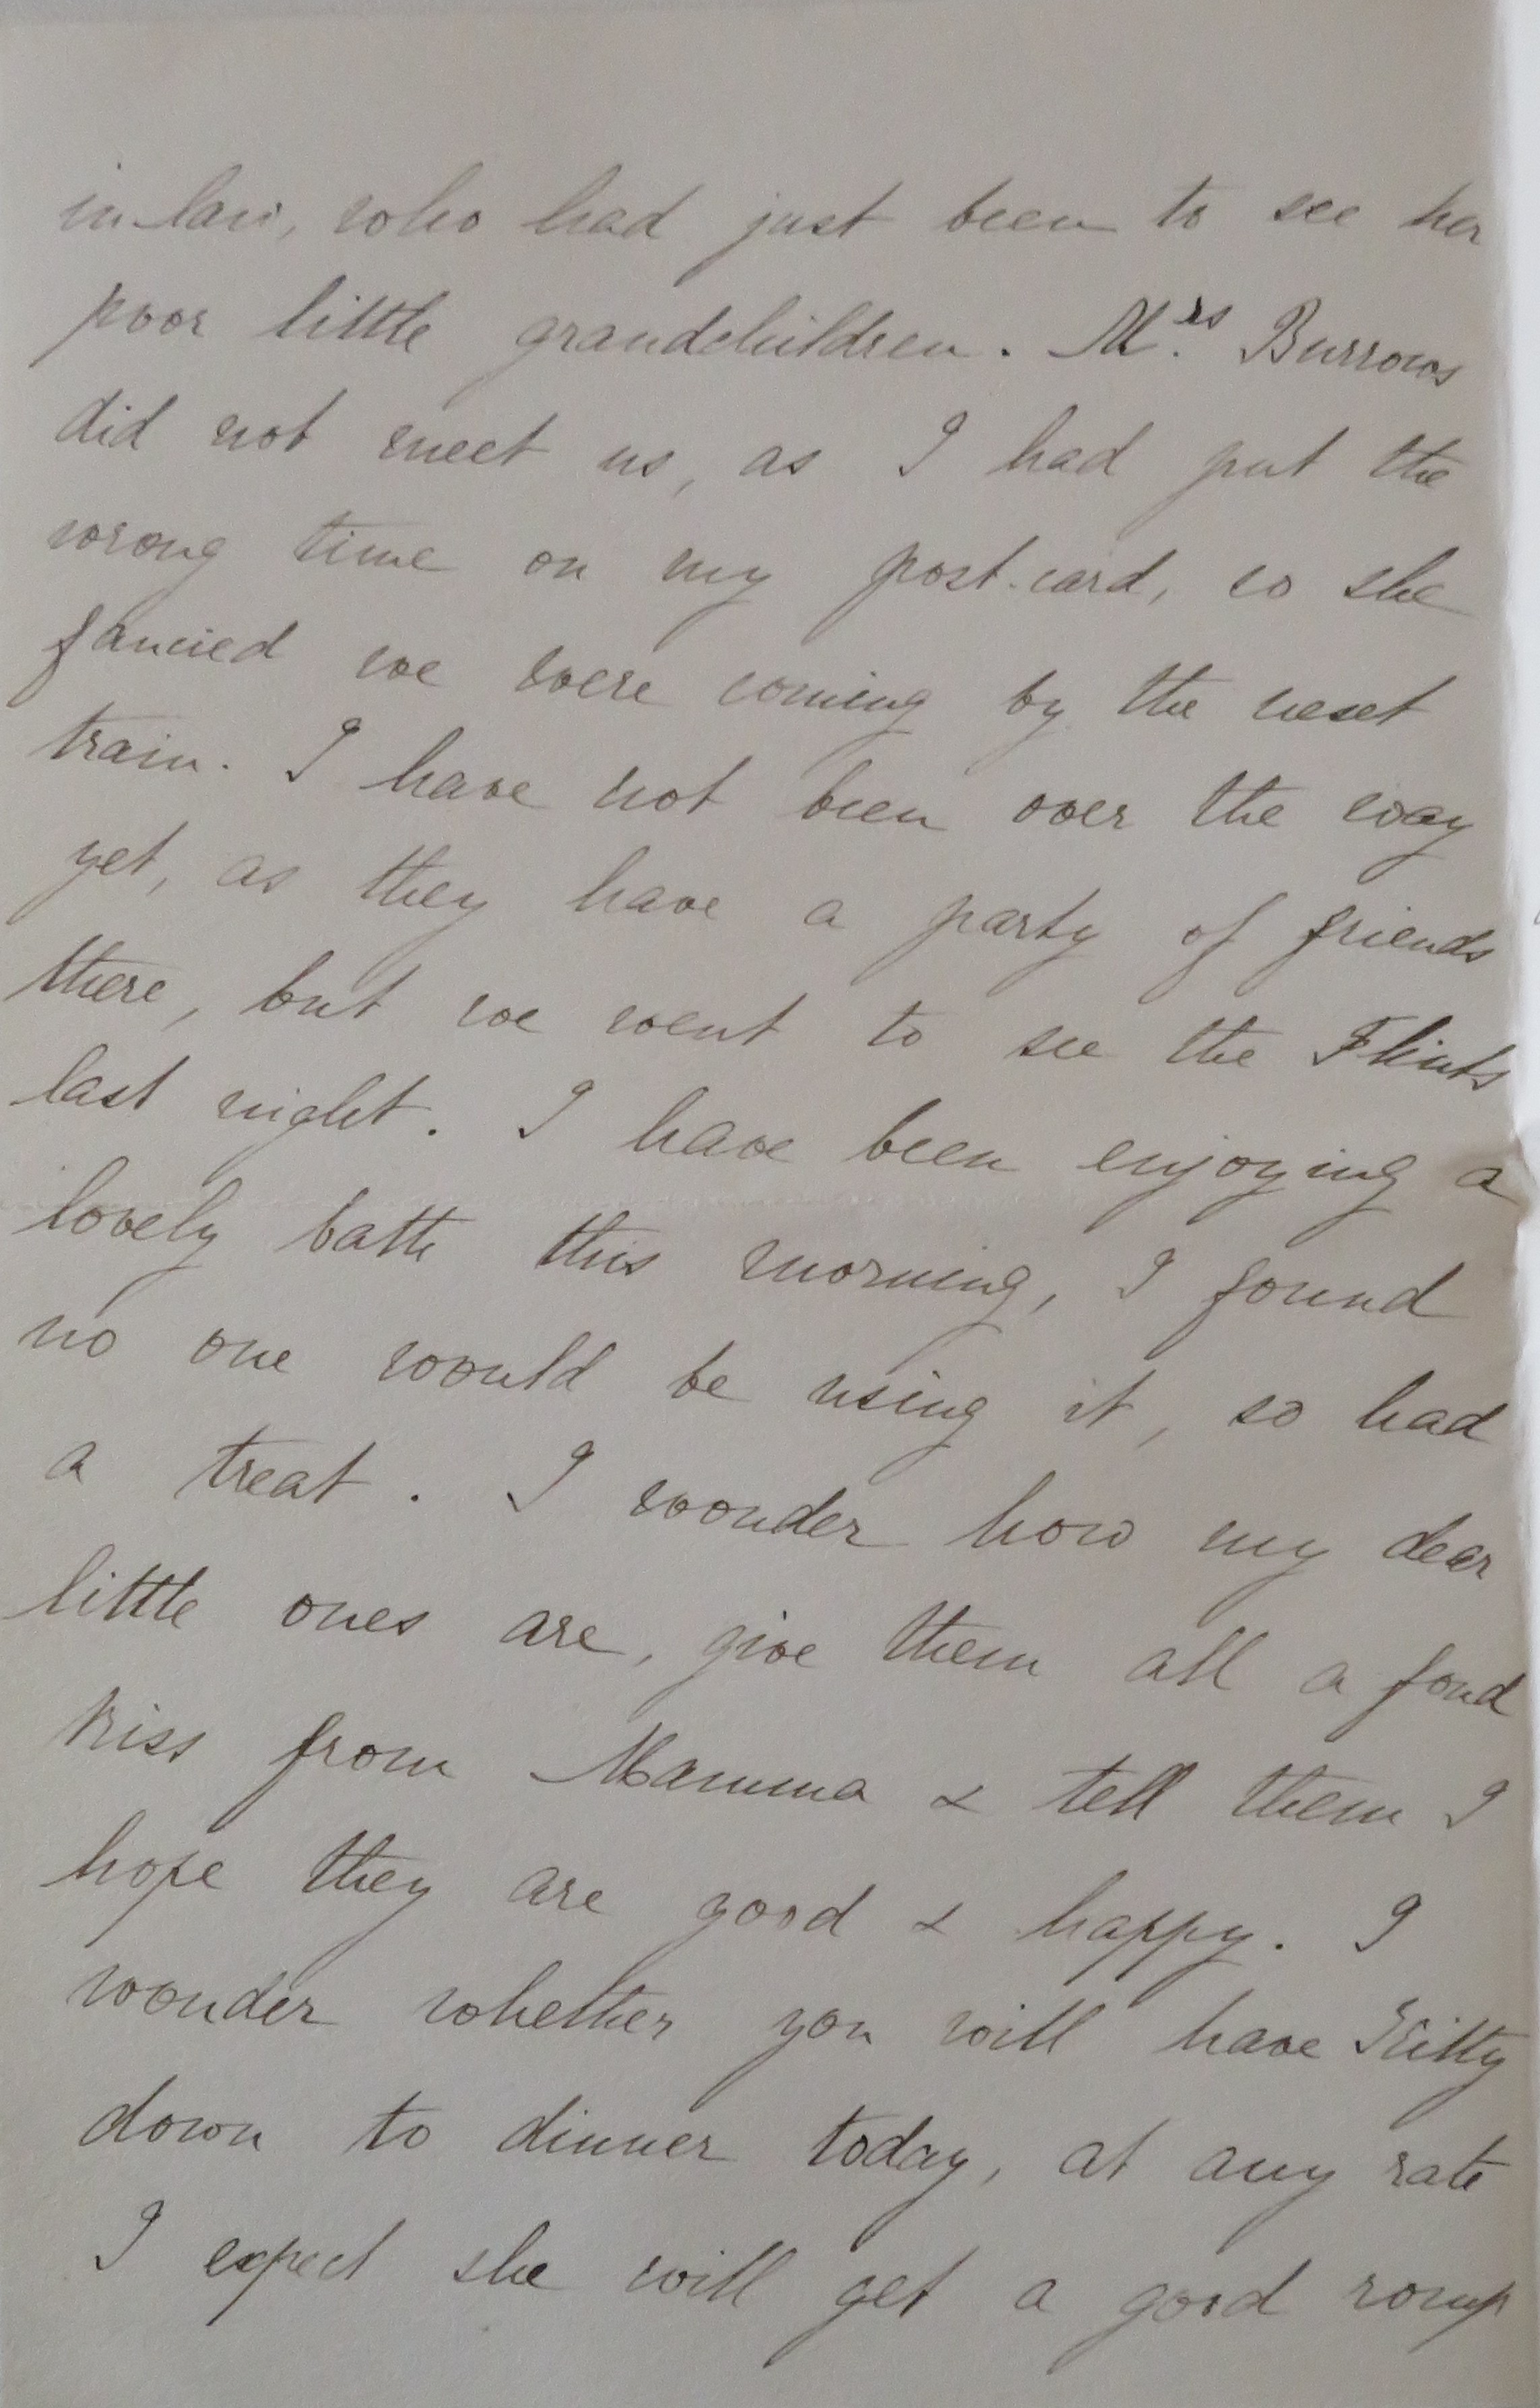 in-law, who had just been to see her
poor little grandchildren. Mrs Burrows
did not meet us, as I had put the
wrong time on my post-card, so she
fancied we were coming by the next
train. I have not been over the way
yet, as they have a party of friends
there, but we went to see the Flints
last night. I have been enjoying a
lovely bath this morning, I found
no one would be using it, so had
a treat. I wonder how my dear
little ones are, give them all a fond
kiss from Mamma & tell them I
hope they are good & happy. I
wonder whether you will have Kitty
down to dinner today, at any rate
I expect she will get a good romp